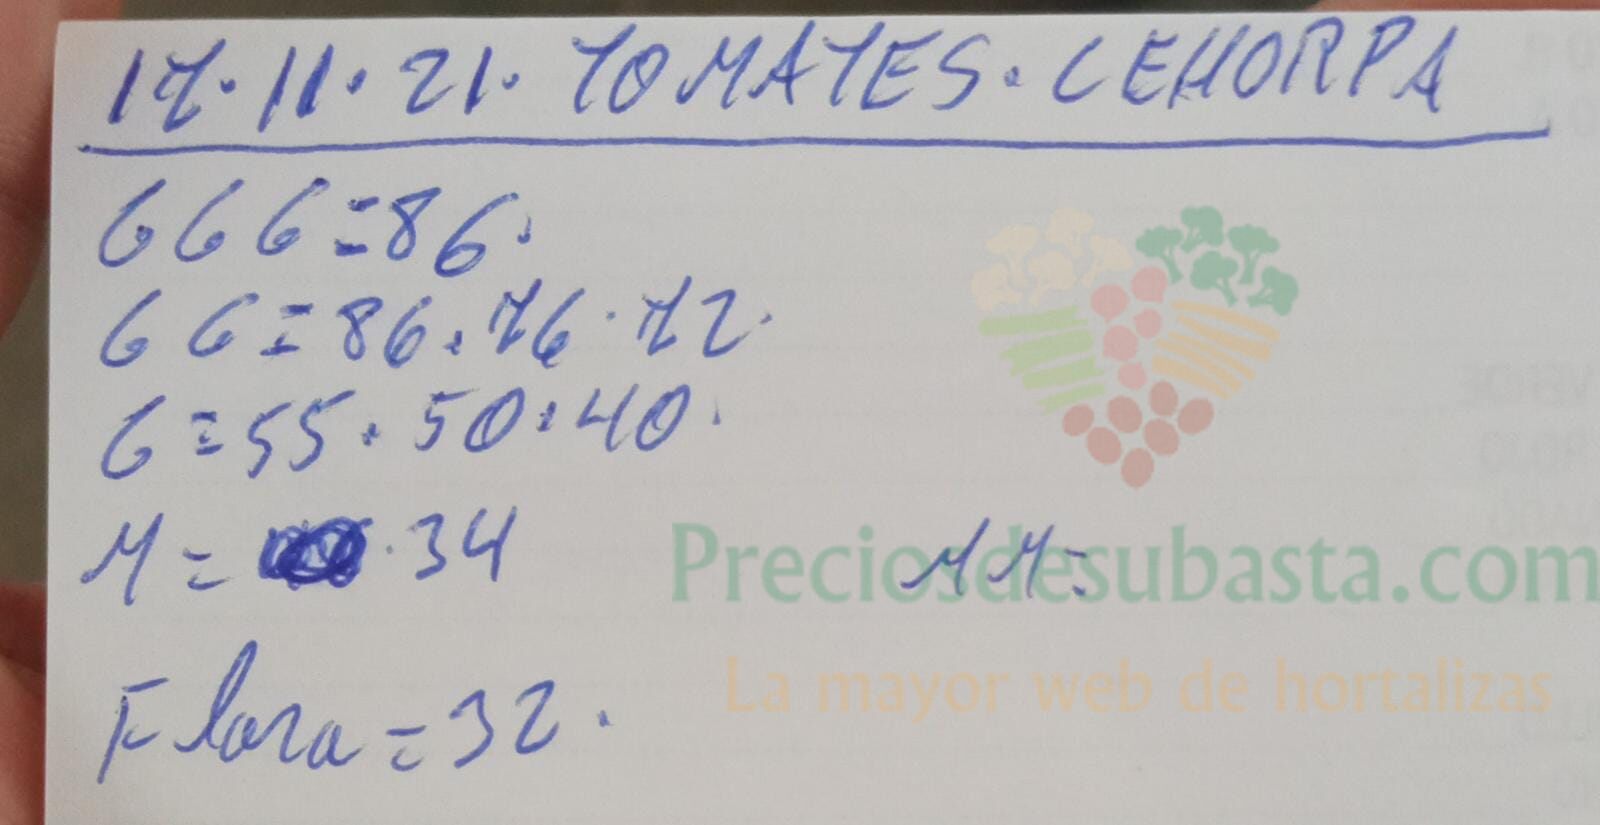 17.11.21. TOMATES. CEHORPA
GGG=86.
GG=86.76.72.
G=55.50.40.
M= .34 MM=
Preciosdesubasta.com
La mayor web de hortalizas
Flora=32.